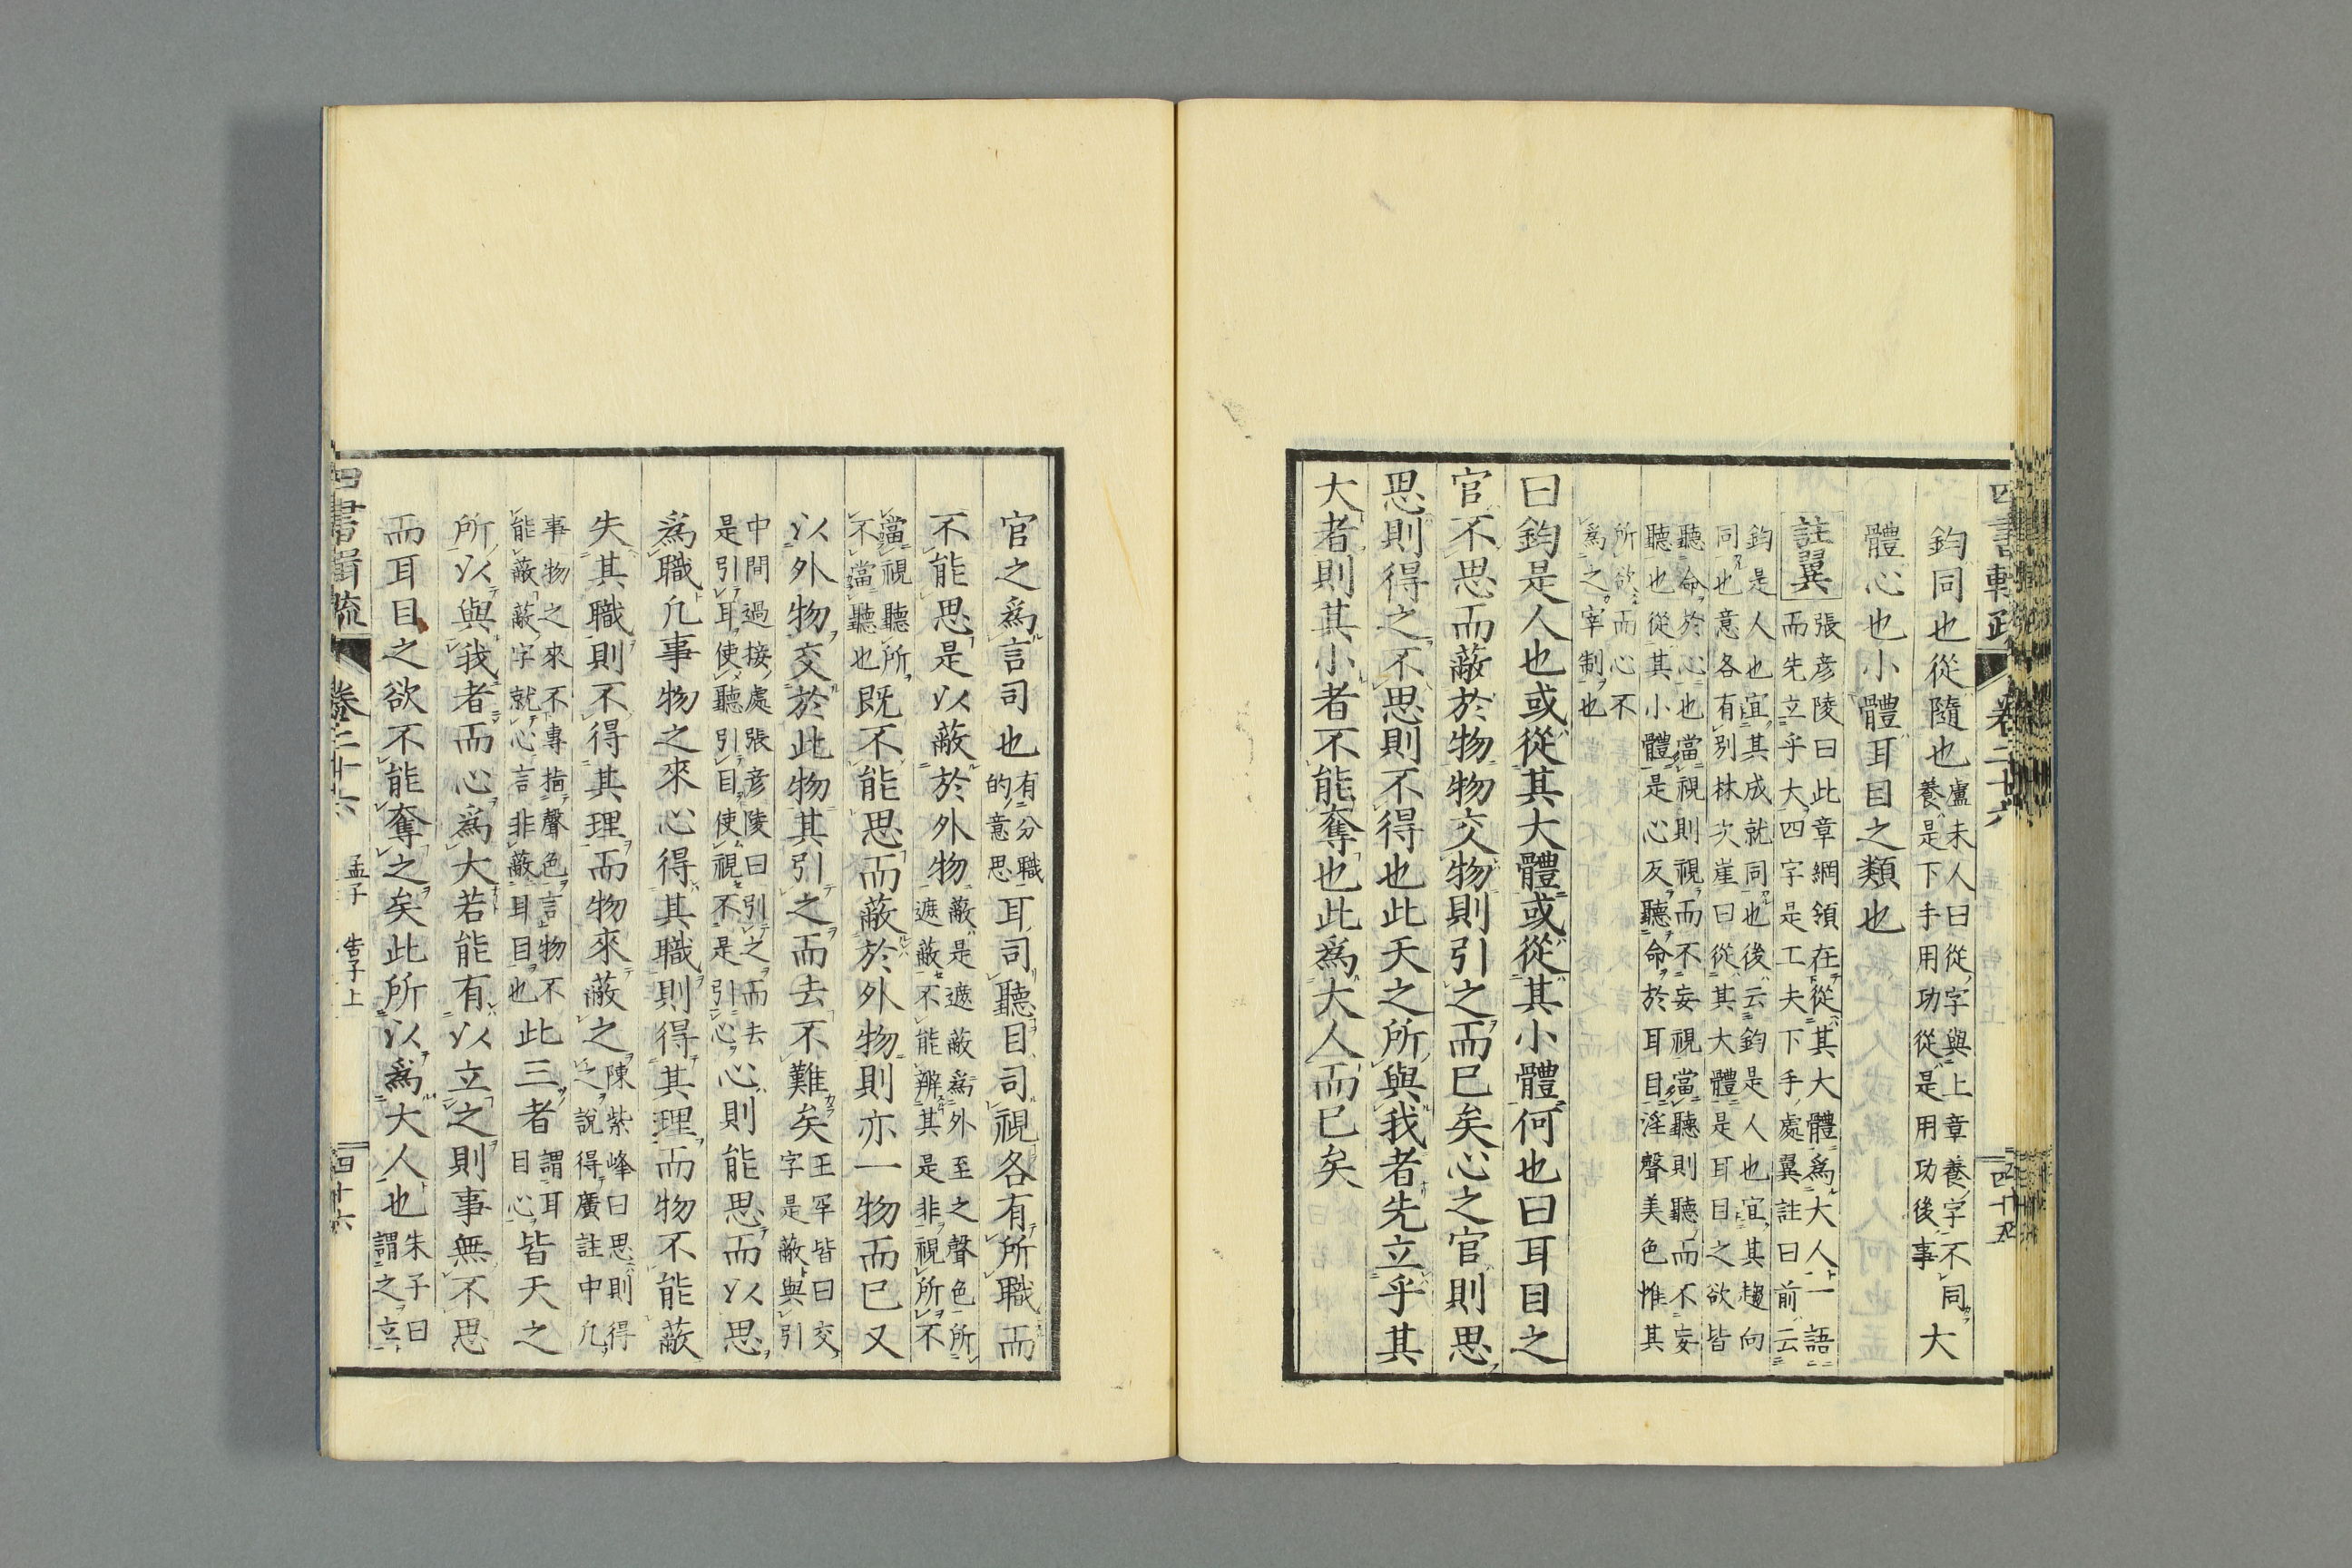 鈞同也從隨也盧未人曰從字與上章養字不同養是下手用功從是用功後事大
體心也小體耳目之類也
註翼張彦陵曰此章綱領在從其大體為大人一語而先立乎大四字是工夫下手處翼註曰前云
鈞是人也宜其成就同也後云鈞是人也宜其趨向同也意各有別林次崖曰從其大體是耳目之欲皆
聽命於心也當視則視而不妄視當聽則聽而不妄聽也從其小體是心反聽命於耳目淫聲美色惟其
所欲而心不為之宰制也
曰鈞是人也或從其大體或從其小體何也曰耳目之
官不思而蔽於物物交物則引之而已矣心之官則思
思則得之不思則不得也此天之所與我者先立乎其
大者則其小者不能奪也此爲大人而已矣
官之爲言司也有分職的意思耳司聽目司視各有所職而
不能思是以蔽於外物蔽是遮蔽爲外至之聲色所遮蔽不能辨其是非視所不
當視聽所不當聽也既不能思而蔽於外物則亦一物而已又
以外物交於此物其引之而去不難矣王罕皆曰交字是蔽與引
中間過接處張彦陵曰引之而去是引耳使聽引目使視不是引心心則能思而以思
爲職凡事物之來心得其職則得其理而物不能蔽
失其職則不得其理而物來蔽之陳紫峰曰思則得之說得廣註中凡
事物之來不專指聲色言物不能蔽蔽字就心言非蔽耳目也此三者謂耳目心皆天之
所以與我者而心爲大若能有以立之則事無不思
而耳目之欲不能奪之矣此所以爲大人也朱子曰謂之立
卷二十六 孟子 告子上 四十六